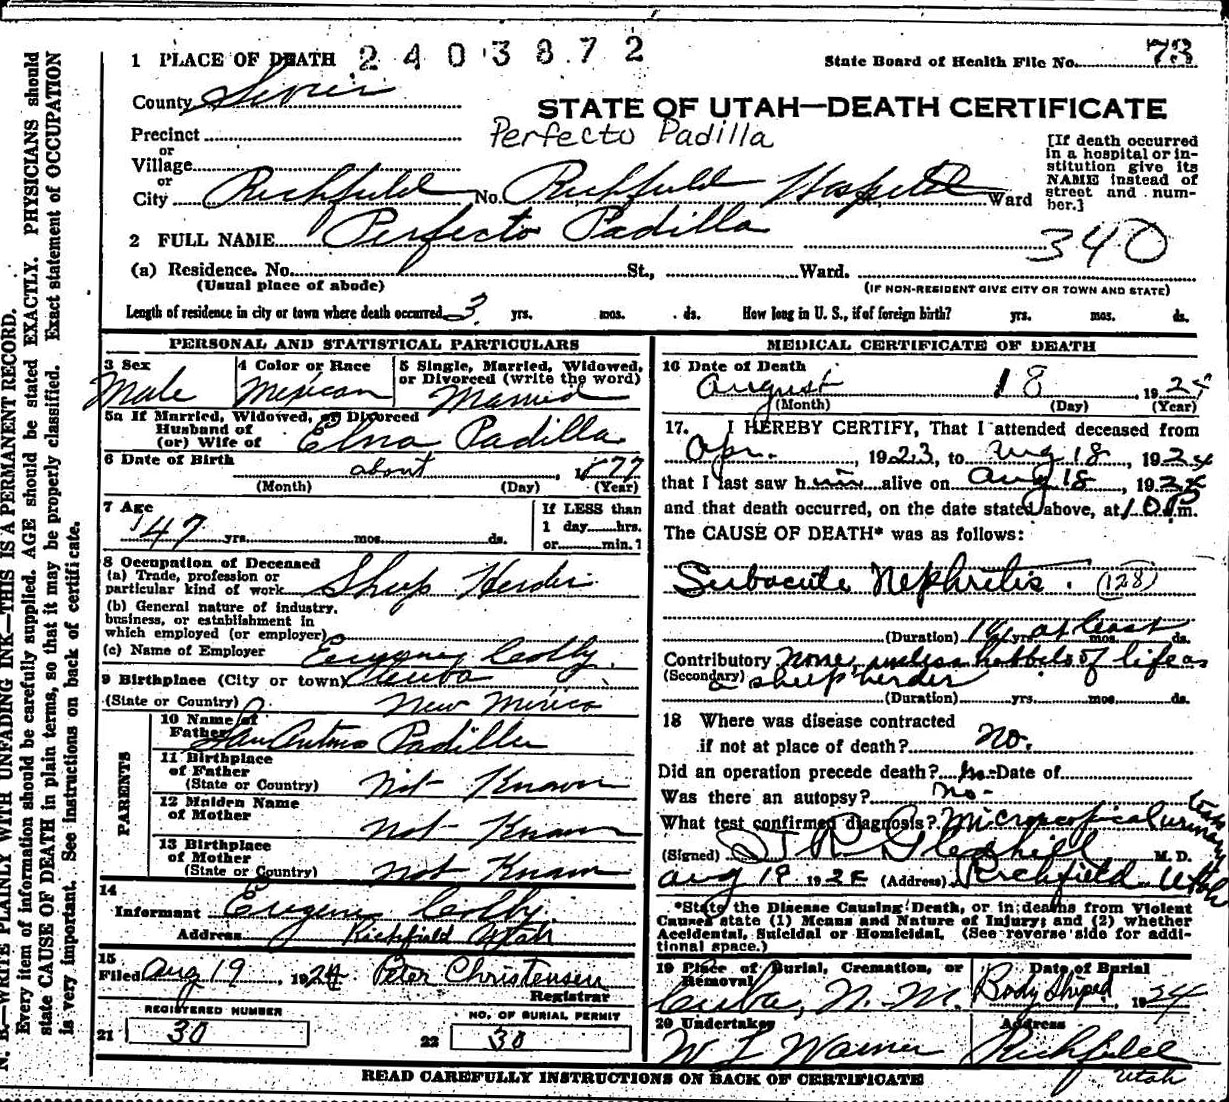 1 PLACE OF DEATH 2403872
State Board of Health File No. 73
County Sevier
STATE OF UTAH—DEATH CERTIFICATE
Precinct
Perfecto Padilla
or
Village
or
City Richfield No. Richfield Hospital Ward
[If death occurred
in a hospital or in-
stitution give its
NAME instead of
street and num-
ber.]
2 FULL NAME Perfecto Padilla 340
(a) Residence. No. St., Ward.
(Usual place of abode)
(IF NON-RESIDENT GIVE CITY OR TOWN AND STATE)
Length of residence in city or town where death occurred 3 yrs. mos. ds. How long in U. S., if of foreign birth? yrs. mos. ds.
PERSONAL AND STATISTICAL PARTICULARS
3 Sex
Male
4 Color or Race
Mexican
5 Single, Married, Widowed,
or Divorced (write the word)
Married
5a If Married, Widowed, or Divorced
Husband of
(or) Wife of Elna Padilla
6 Date of Birth about 1877
(Month) (Day) (Year)
7 Age
47 yrs. mos. ds.
If LESS than
1 day hrs.
or min.?
8 Occupation of Deceased
(a) Trade, profession or
particular kind of work Sheep Herder
(b) General nature of industry,
business, or establishment in
which employed (or employer)
(c) Name of Employer Colby
9 Birthplace (City or town) Cuba
(State or Country) New Mexico
PARENTS
10 Name of
Father San Antonio Padilla
11 Birthplace
of Father
(State or Country) Not Known
12 Maiden Name
of Mother Not Known
13 Birthplace
of Mother
(State or Country) Not Known
14
Informant Eugene Colby
Address Richfield Utah
15
Filed Aug 19 1924 Peter Christensen
Registrar
REGISTERED NUMBER
21 30
NO. OF BURIAL PERMIT
22 30
MEDICAL CERTIFICATE OF DEATH
16 Date of Death
August 18, 1924
(Month) (Day) (Year)
17. I HEREBY CERTIFY, That I attended deceased from
Apr. , 1923, to Aug 18, 1924
that I last saw him alive on Aug 18, 1924
and that death occurred, on the date stated above, at m.
The CAUSE OF DEATH* was as follows:
Subacute Nephritis. (128)
(Duration) yrs. at least mos. ds.
Contributory None, unless habbits of life as
(Secondary) a sheep herder
(Duration) yrs. mos. ds.
18 Where was disease contracted
if not at place of death? no.
Did an operation precede death? no Date of
Was there an autopsy? no-
What test confirmed diagnosis? Microscopical urinary tests
(Signed) M. D.
Aug 19 1924 (Address) Richfield Utah
*State the Disease Causing Death, or in deaths from Violent
Causes state (1) Means and Nature of Injury; and (2) whether
Accidental, Suicidal or Homicidal. (See reverse side for addi-
tional space.)
19 Place of Burial, Cremation, or
Removal
Cuba, N. M.
Date of Burial
Body Shiped 1924
20 Undertaker
W L Warner
Address
Richfield
Utah
READ CAREFULLY INSTRUCTIONS ON BACK OF CERTIFICATE
N. B.—WRITE PLAINLY WITH UNFADING INK—THIS IS A PERMANENT RECORD.
Every item of information should be carefully supplied. AGE should be stated EXACTLY. PHYSICIANS should
state CAUSE OF DEATH in plain terms, so that it may be properly classified. Exact statement of OCCUPATION
is very important. See instructions on back of certificate.